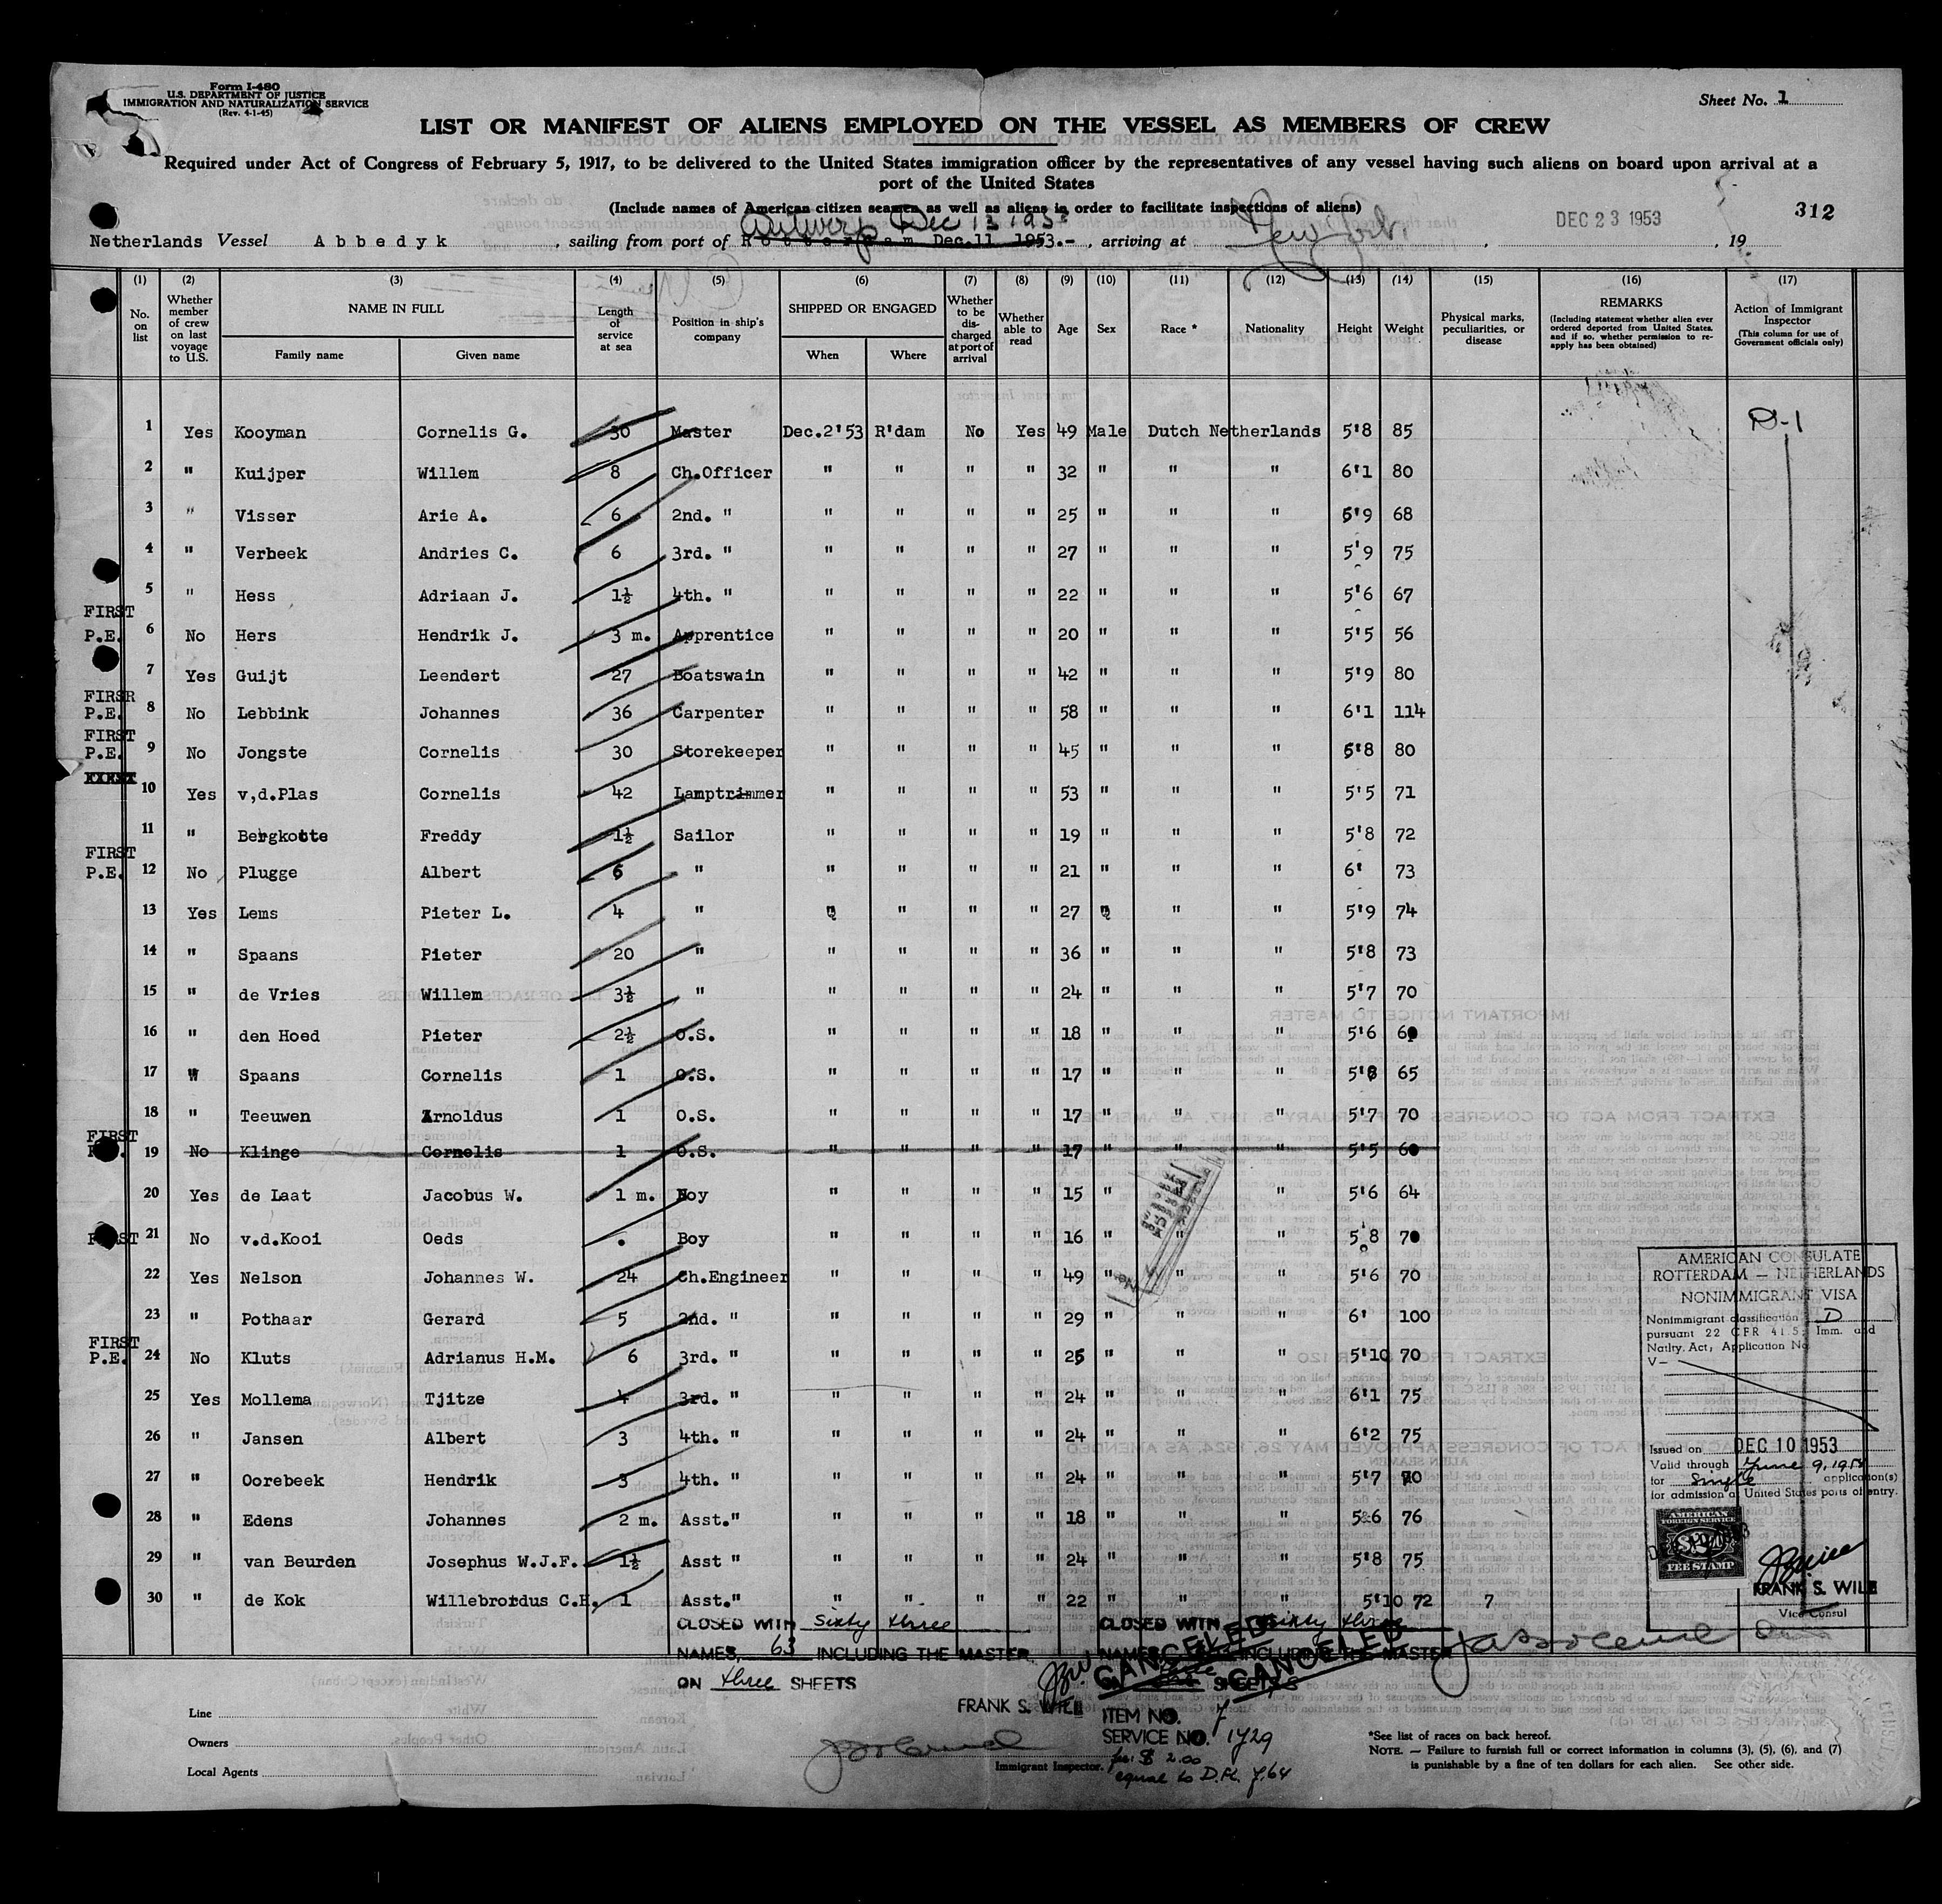 Form I-480
U.S. DEPARTMENT OF JUSTICE
IMMIGRATION AND NATURALIZATION SERVICE
(Rev. 4-1-45)
Sheet No. 1
LIST OR MANIFEST OF ALIENS EMPLOYED ON THE VESSEL AS MEMBERS OF CREW
Required under Act of Congress of February 5, 1917, to be delivered to the United States immigration officer by the representatives of any vessel having such aliens on board upon arrival at a
port of the United States
(Include names of American citizen seamen as well as aliens in order to facilitate inspections of aliens)
312
Antwerp Dec 13 1953
DEC 23 1953
Netherlands Vessel Abbedyk, sailing from port of Rotterdam Dec.11 1953.-, arriving at New York, 19
(1) (2) (3) (4) (5) (6) (7) (8) (9) (10) (11) (12) (13) (14) (15) (16) (17)
No. on list
Whether member of crew on last voyage to U.S.
NAME IN FULL
Family name
Given name
Length of service at sea
Position in ship's company
SHIPPED OR ENGAGED
When
Where
Whether to be discharged at port of arrival
Whether able to read
Age
Sex
Race *
Nationality
Height
Weight
Physical marks, peculiarities, or disease
REMARKS
(Including statement whether alien ever ordered deported from United States, and if so, whether permission to re-apply has been obtained)
Action of Immigrant Inspector
(This column for use of Government officials only)
D-1
1 Yes Kooyman Cornelis G. 30 Master Dec.2'53 R'dam No Yes 49 Male Dutch Netherlands 5'8 85
2 " Kuijper Willem 8 Ch.Officer " " " " 32 " " " 6'1 80
3 " Visser Arie A. 6 2nd. " " " " " 25 " " " 5'9 68
4 " Verbeek Andries C. 6 3rd. " " " " " 27 " " " 5'9 75
5 " Hess Adriaan J. 1½ 4th. " " " " " 22 " " " 5'6 67
FIRST
P.E. 6 No Hers Hendrik J. 3 m. Apprentice " " " " 20 " " " 5'5 56
7 Yes Guijt Leendert 27 Boatswain " " " " 42 " " " 5'9 80
FIRSR
P.E. 8 No Lebbink Johannes 36 Carpenter " " " " 58 " " " 6'1 114
FIRST
P.E. 9 No Jongste Cornelis 30 Storekeeper " " " " 45 " " " 5'8 80
10 Yes v,d.Plas Cornelis 42 Lamptrimmer " " " " 53 " " " 5'5 71
11 " Bergkotte Freddy 1½ Sailor " " " " 19 " " " 5'8 72
FIRST
P.E. 12 No Plugge Albert 6 " " " " " 21 " " " 6' 73
13 Yes Lems Pieter L. 4 " " " " " 27 " " " 5'9 74
14 " Spaans Pieter 20 " " " " " 36 " " " 5'8 73
15 " de Vries Willem 3½ " " " " " 24 " " " 5'7 70
16 " den Hoed Pieter 2½ O.S. " " " " 18 " " " 5'6 60
17 " Spaans Cornelis 1 O.S. " " " " 17 " " " 5'8 65
18 " Teeuwen Arnoldus 1 O.S. " " " " 17 " " " 5'7 70
FIRST
19 No Klinge Cornelis 1 O.S. " " " " 17 " " " 5'5 60
20 Yes de Laat Jacobus W. 1 m. Boy " " " " 15 " " " 5'6 64
21 No v.d.Kooi Oeds . Boy " " " " 16 " " " 5'8 70
22 Yes Nelson Johannes W. 24 Ch.Engineer " " " " 49 " " " 5'6 70
23 " Pothaar Gerard 5 2nd. " " " " " 29 " " " 6' 100
FIRST
P.E. 24 No Kluts Adrianus H.M. 6 3rd. " " " " " 25 " " " 5'10 70
25 Yes Mollema Tjitze 4 3rd. " " " " " 24 " " " 6'1 75
26 " Jansen Albert 3 4th. " " " " " 24 " " " 6'2 75
27 " Oorebeek Hendrik 3 4th. " " " " " 24 " " " 5'7 70
28 " Edens Johannes 2 m. Asst." " " " " 18 " " " 5'6 76
29 " van Beurden Josephus W.J.F. 1½ Asst " " " " " 24 " " " 5'8 75
30 " de Kok Willebrordus C.H. 1 Asst." " " " " 22 " " " 5'10 72 7
AMERICAN CONSULATE
ROTTERDAM — NETHERLANDS
NONIMMIGRANT VISA
Nonimmigrant classification D
pursuant 22 CFR 41.5; Imm. and
Natlty. Act; Application No.
V—
Issued on DEC 10 1953
Valid through June 9, 1954
for Single application(s)
for admission at United States ports of entry.
AMERICAN
FOREIGN SERVICE
$2
FEE STAMP
FRANK S. WILE
Vice Consul
CLOSED WITH Sixty three
NAMES, 63 INCLUDING THE MASTER
ON three SHEETS
FRANK S. WILE
CLOSED WITH Sixty three
NAMES INCLUDING THE MASTER
ON SHEETS
CANCELED CANCELED
ITEM NO. 7
SERVICE NO. 1729
fee $ 2.00
equal to D.Fl. 7.64
Line
Owners
Local Agents
Immigrant Inspector.
*See list of races on back hereof.
NOTE. — Failure to furnish full or correct information in columns (3), (5), (6), and (7)
is punishable by a fine of ten dollars for each alien. See other side.